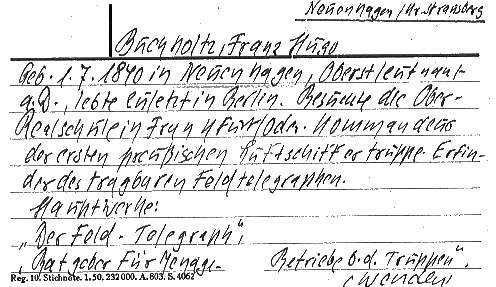 Neuenhagen/Kr. Strausberg
Buchholtz, Franz Hugo
Geb. 1.7.1840 in Neuenhagen, Oberstleutnant
a.D., lebte zuletzt in Berlin. Besuchte die Ober-
Realschule in Frankfurt/Oder. Kommandeur
der ersten preußischen Luftschiffertruppe. Erfin-
der des tragbaren Feldtelegraphen.
Hauptwerke:
„Der Feld-Telegraph",
„Ratgeber für Menage- Betriebe b.d. Truppen".
Reg. 10. Stichnote. 1.50, 232000. A. 803. S. 4062